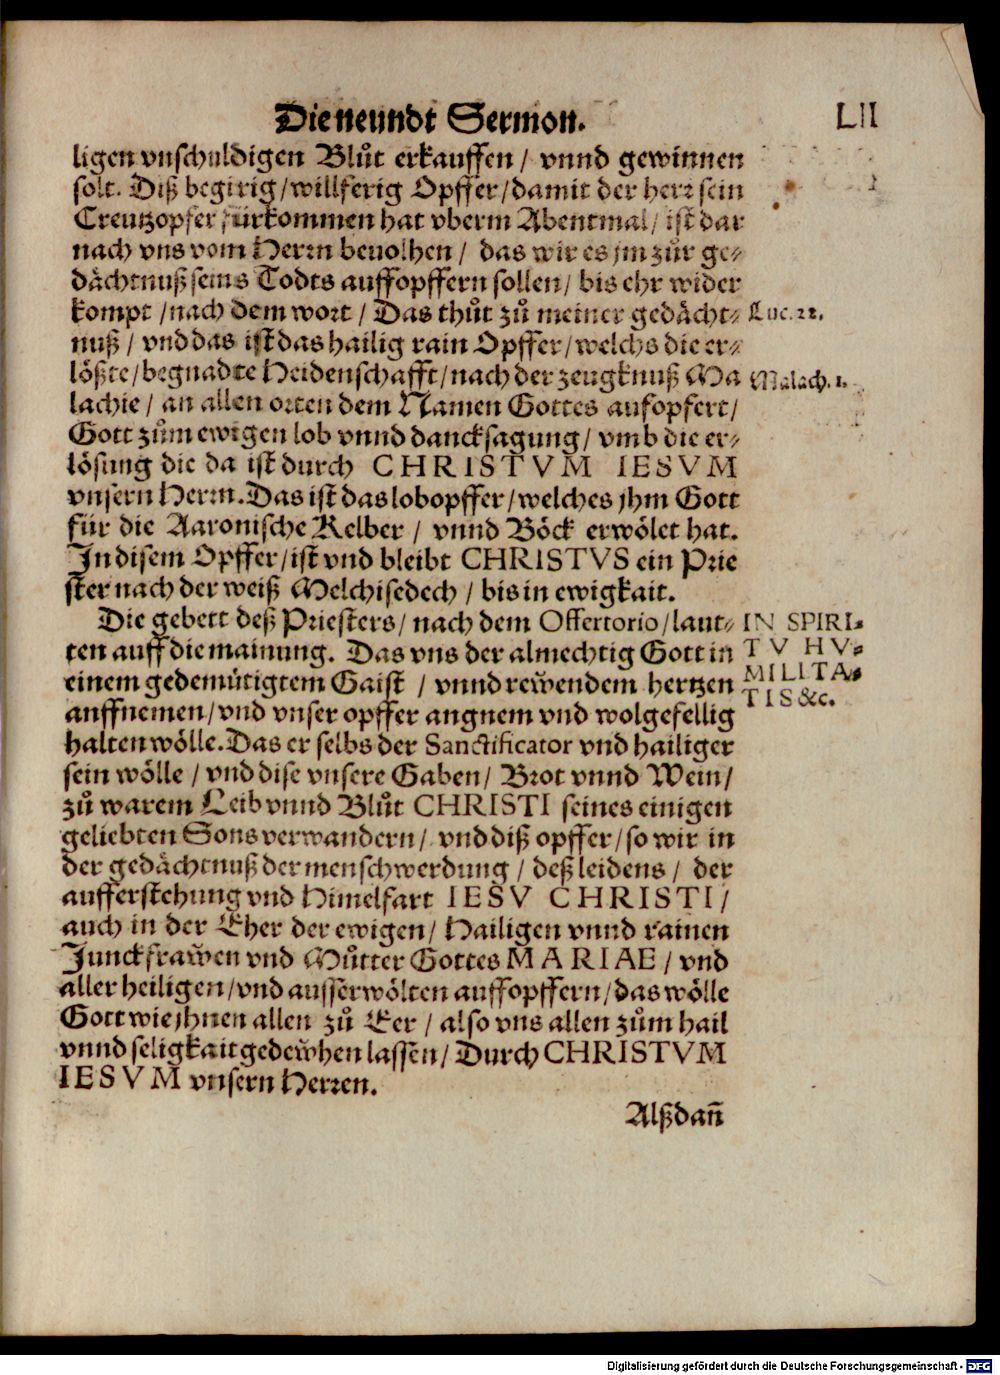 Die neundt Sermon. LII
ligen vnschuldigen Blůt erkauffen / vnnd gewinnen
solt. Diß begirig / willferig Opffer / damit der herr sein
Creutzopfer fürkommen hat vberm Abentmal / ist dar
nach vns vom Herrn beuolhen / das wir es jm zůr ge⸗
dächtnuß seins Todts auffopffern sollen / bis ehr wider
kompt / nach dem wort / Das thůt zů meiner gedächt⸗
Luc. 22.
nuß / vnd das ist das hailig rain Opffer / welchs die er⸗
lößte / begnadte Heidenschafft / nach der zeugknuß Ma
Malach. 1.
lachie / an allen orten dem Namen Gottes aufopfert /
Gott zům ewigen lob vnnd dancksagung / vmb die er⸗
lösung die da ist durch CHRISTVM IESVM
vnsern Herrn. Das ist das lobopffer / welches jhm Gott
für die Aaronische Kelber / vnnd Böck erwölet hat.
In disem Opffer / ist vnd bleibt CHRISTVS ein Prie
ster nach der weiß Melchisedech / bis in ewigkait.
Die gebett deß Priesters / nach dem Offertorio / laut⸗
ten auff die mainung. Das vns der almechtig Gott in
einem gedemütigtem Gaist / vnnd rewendem hertzen
auffnemen / vnd vnser opffer angnem vnd wolgefellig
IN SPIRI⸗
TV HV⸗
MILITA⸗
TIS &c.
halten wölle. Das er selbs der Sanctificator vnd hailiger
sein wölle / vnd dise vnsere Gaben / Brot vnnd Wein /
zů warem Leib vnnd Blůt CHRISTI seines einigen
geliebten Sons verwandern / vnd diß opffer / so wir in
der gedächtnuß der menschwerdung / deß leidens / der
aufferstehung vnd Himelfart IESV CHRISTI /
auch in der Eher der ewigen / Hailigen vnnd rainen
Junckfrawen vnd Můtter Gottes MARIAE / vnd
aller heiligen / vnd ausserwölten auffopffern / das wölle
Gott wie jhnen allen zů Eer / also vns allen zům hail
vnnd seligkait gedewhen lassen / Durch CHRISTVM
IESVM vnsern Herren.
Alßdañ
Digitalisierung gefördert durch die Deutsche Forschungsgemeinschaft - DFG